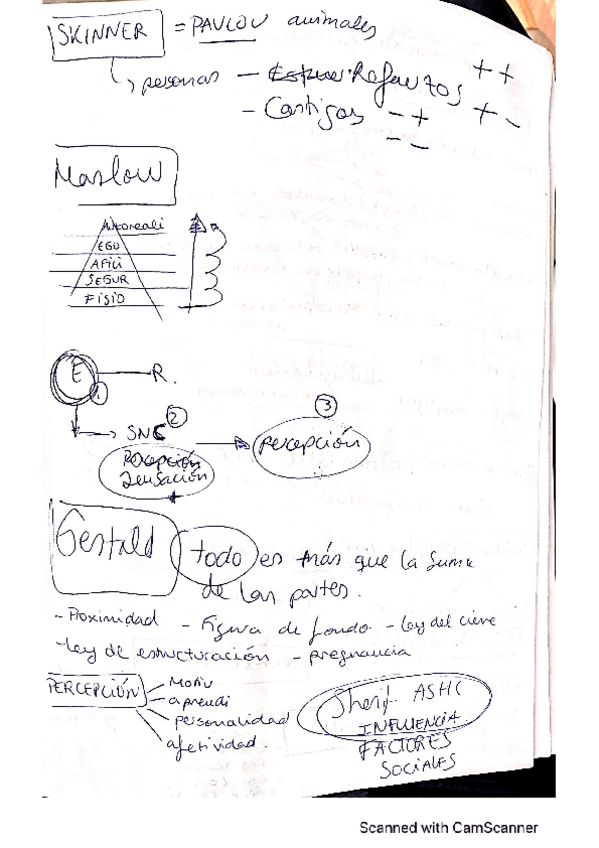 SKINNER = PAVLOV animales
personas - Refuerzos ++
+ -
- Castigos - +
- -
Maslow
Autoreali
EGO
AFILI
SEGUR
FISIO
E R.
1
SNC 2
3
Percepción
sensación
percepción
Gestald todo es más que la suma
de las partes.
- Proximidad - Figura de fondo - ley del cierre
- ley de estructuración - pregnancia
PERCEPCIÓN
Motiv
aprendi
personalidad
afectividad.
Sherif ASHC
INFLUENCIA
FACTORES
SOCIALES
Scanned with CamScanner